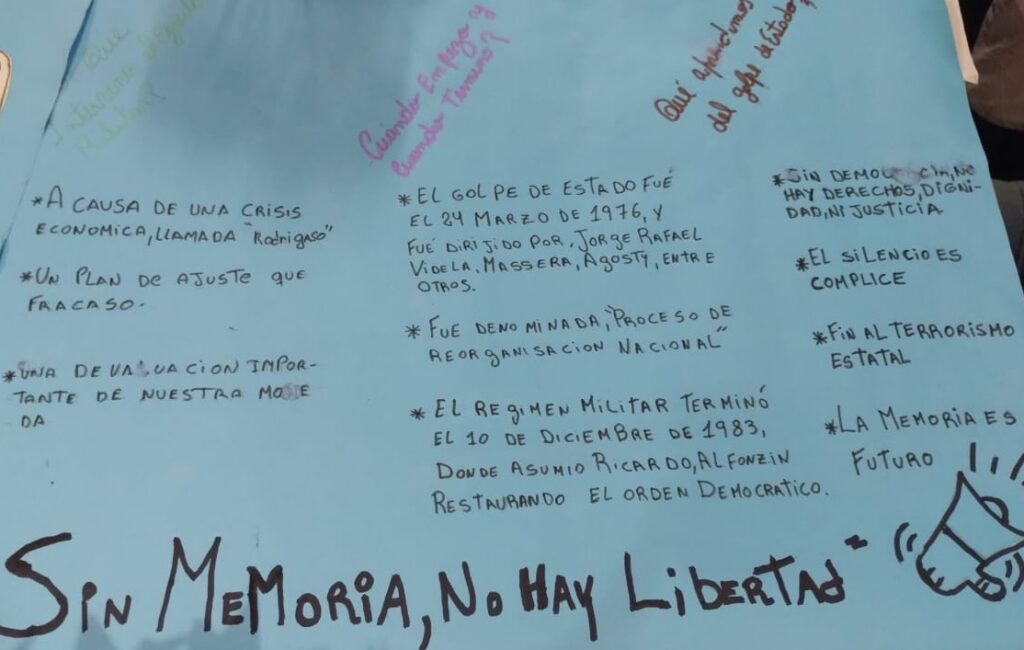 Que
Intervino el
Militar?
*A CAUSA DE UNA CRISIS
ECONOMICA, LLAMADA "Rodrigaso"
*UN PLAN DE AJUSTE QUE
FRACASO.
*UNA DEVALUACION IMPOR-
TANTE DE NUESTRA MONE
DA
Cuando Empezo y
cuando Termino?
* EL GOLPE DE ESTADO FUÉ
EL 24 MARZO DE 1976, Y
FUÉ DIRIJIDO POR, JORGE RAFAEL
VIDELA, MASSERA, AGOSTY, ENTRE
OTROS.
* FUE DENOMINADA, "PROCESO DE
REORGANISACION NACIONAL"
* EL REGIMEN MILITAR TERMINÓ
EL 10 DE DICIEMBRE DE 1983,
DONDE ASUMIO RICARDO, ALFONZIN
RESTAURANDO EL ORDEN DEMOCRATICO.
Qué aprendimos
del golpe de Estado
*SIN DEMOCRACIA, NO
HAY DERECHOS, DIGNI-
DAD, NI JUSTICIA
*EL SILENCIO ES
COMPLICE
*FIN AL TERRORISMO
ESTATAL
*LA MEMORIA ES
FUTURO
SIN MEMORIA, NO HAY LIBERTAD"